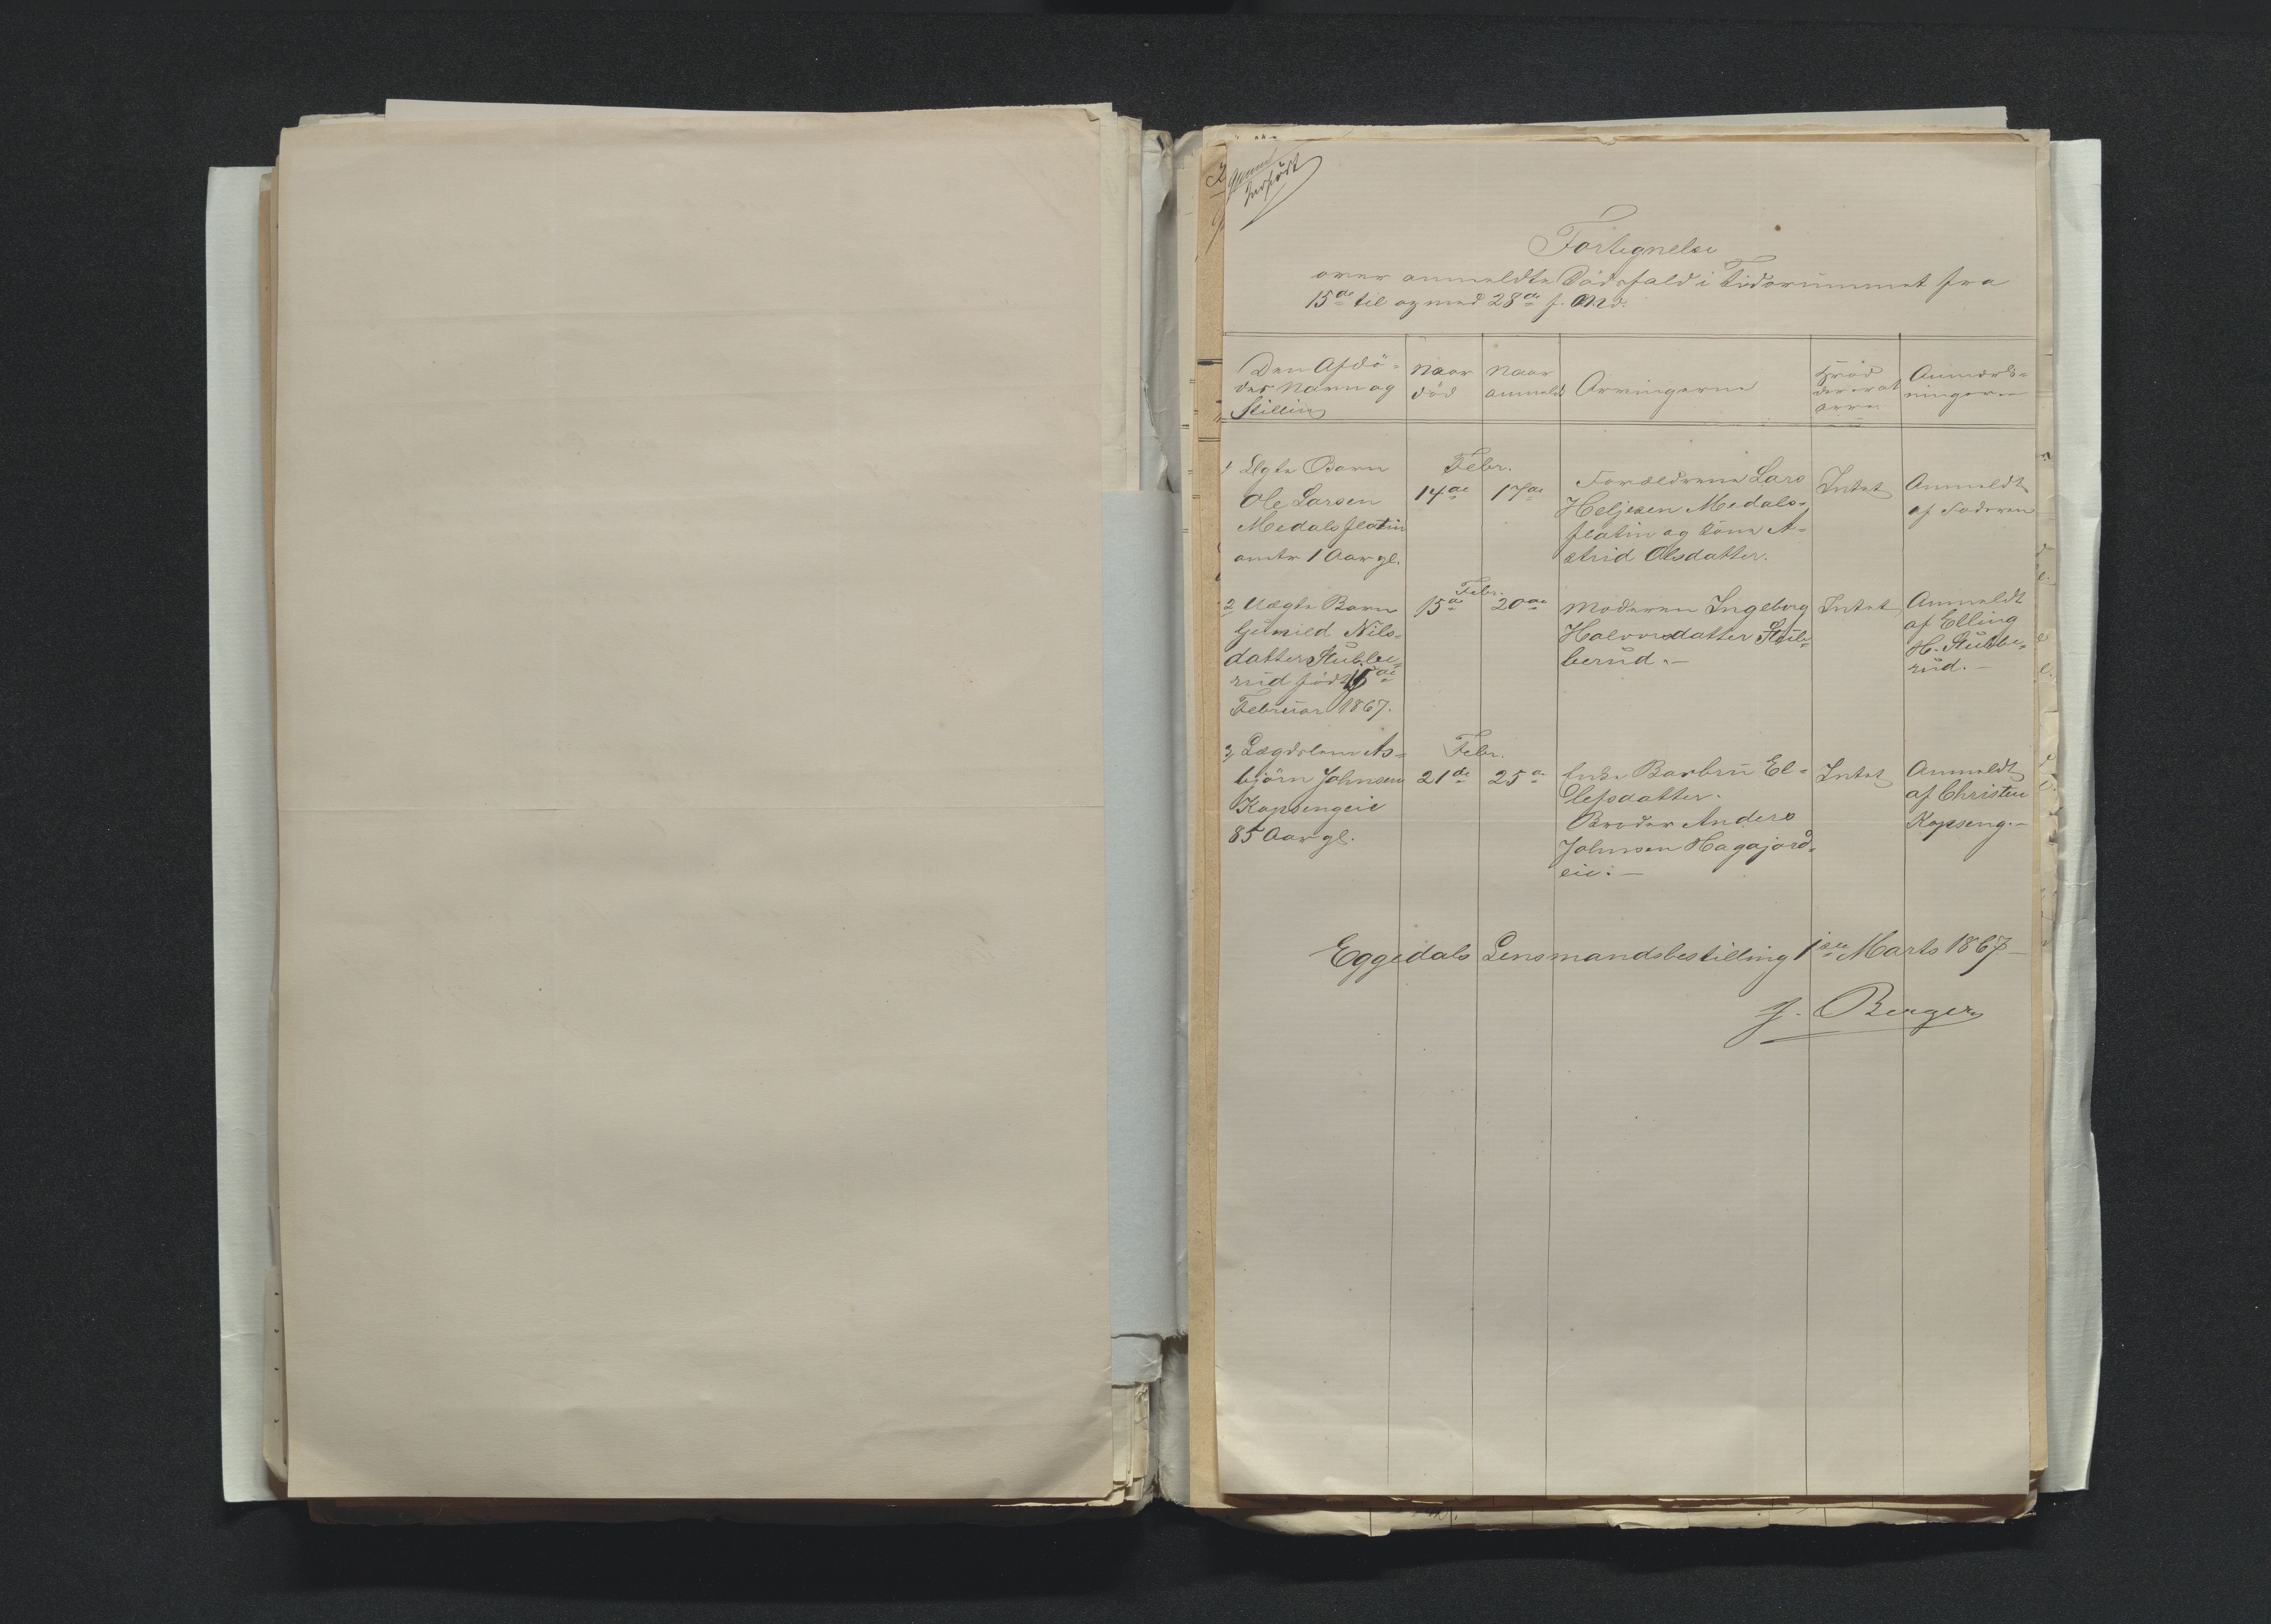 Indført
Fortegnelse
over anmeldte Dödsfald i Tidsrummet fra
15de til og med 28de f. Md.
Den Afdö-
des Navn og
Stilling
Naar
död
Naar
anmeldt
Arvingerne
Hvad
der er at
arve
Anmærk-
ningerne
1 Ægte Barn
Ole Larsen
Medalsflatin
omtr 1 Aar gl.
Febr.
14de
17de
Forældrene Lars
Heljesen Medals-
flatin og Kone A-
strid Olsdatter.
Intet
Anmeldt
af Faderen
2 Uægte Barn
Gunild Nils-
datter Stubbe-
rud født
Februar 1867.
Febr.
15de
20de
Moderen Ingeborg
Halvorsdatter Stub-
berud.-
Intet
Anmeldt
af Elling
H. Stubbe-
rud.-
3 Lægdslem As-
björn Johnsen
Kopsengeie
85 Aar gl.
Febr.
21de
25de
Enke Barbru El-
lefsdatter.
Broder Anders
Johnsen Hagajord-
eie.-
Intet
Anmeldt
af Christen
Kopseng.-
Eggedals Lensmandsbestilling 1ste Marts 1867-
J. Berger